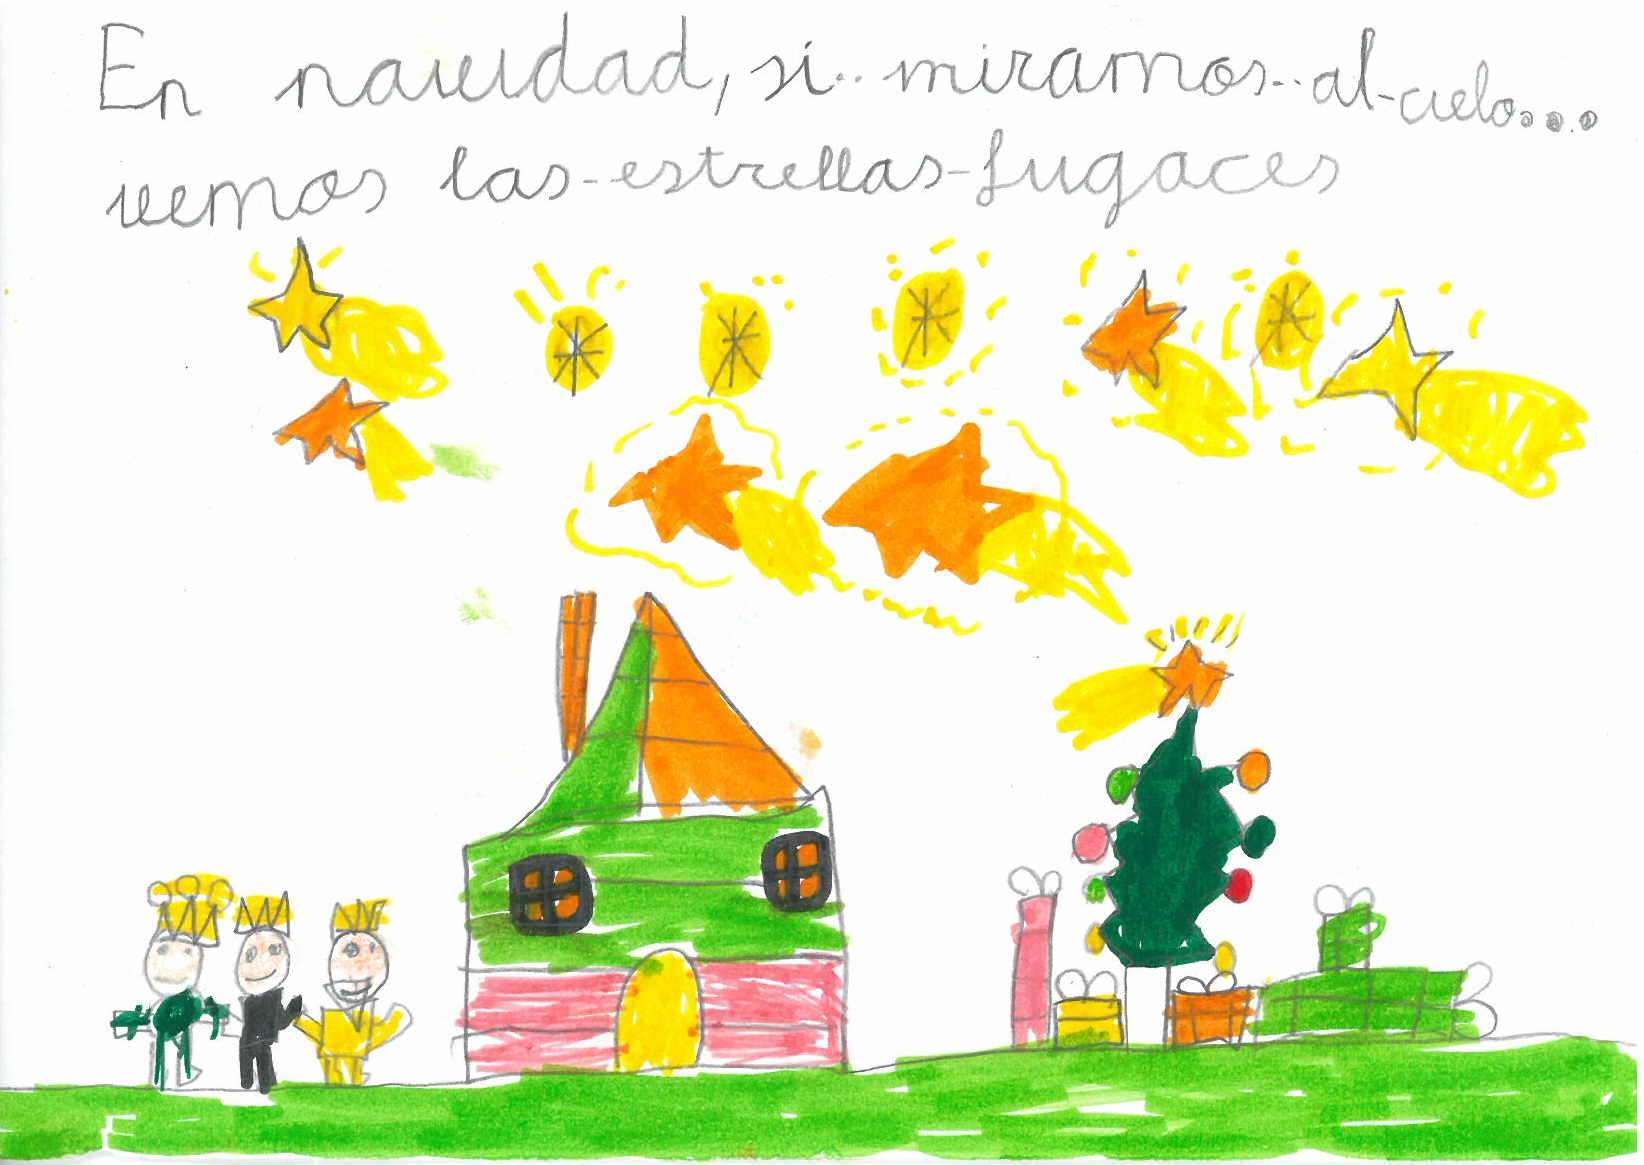 En navidad, si.. miramos..al-cielo...
vemos las--estrellas-fugaces